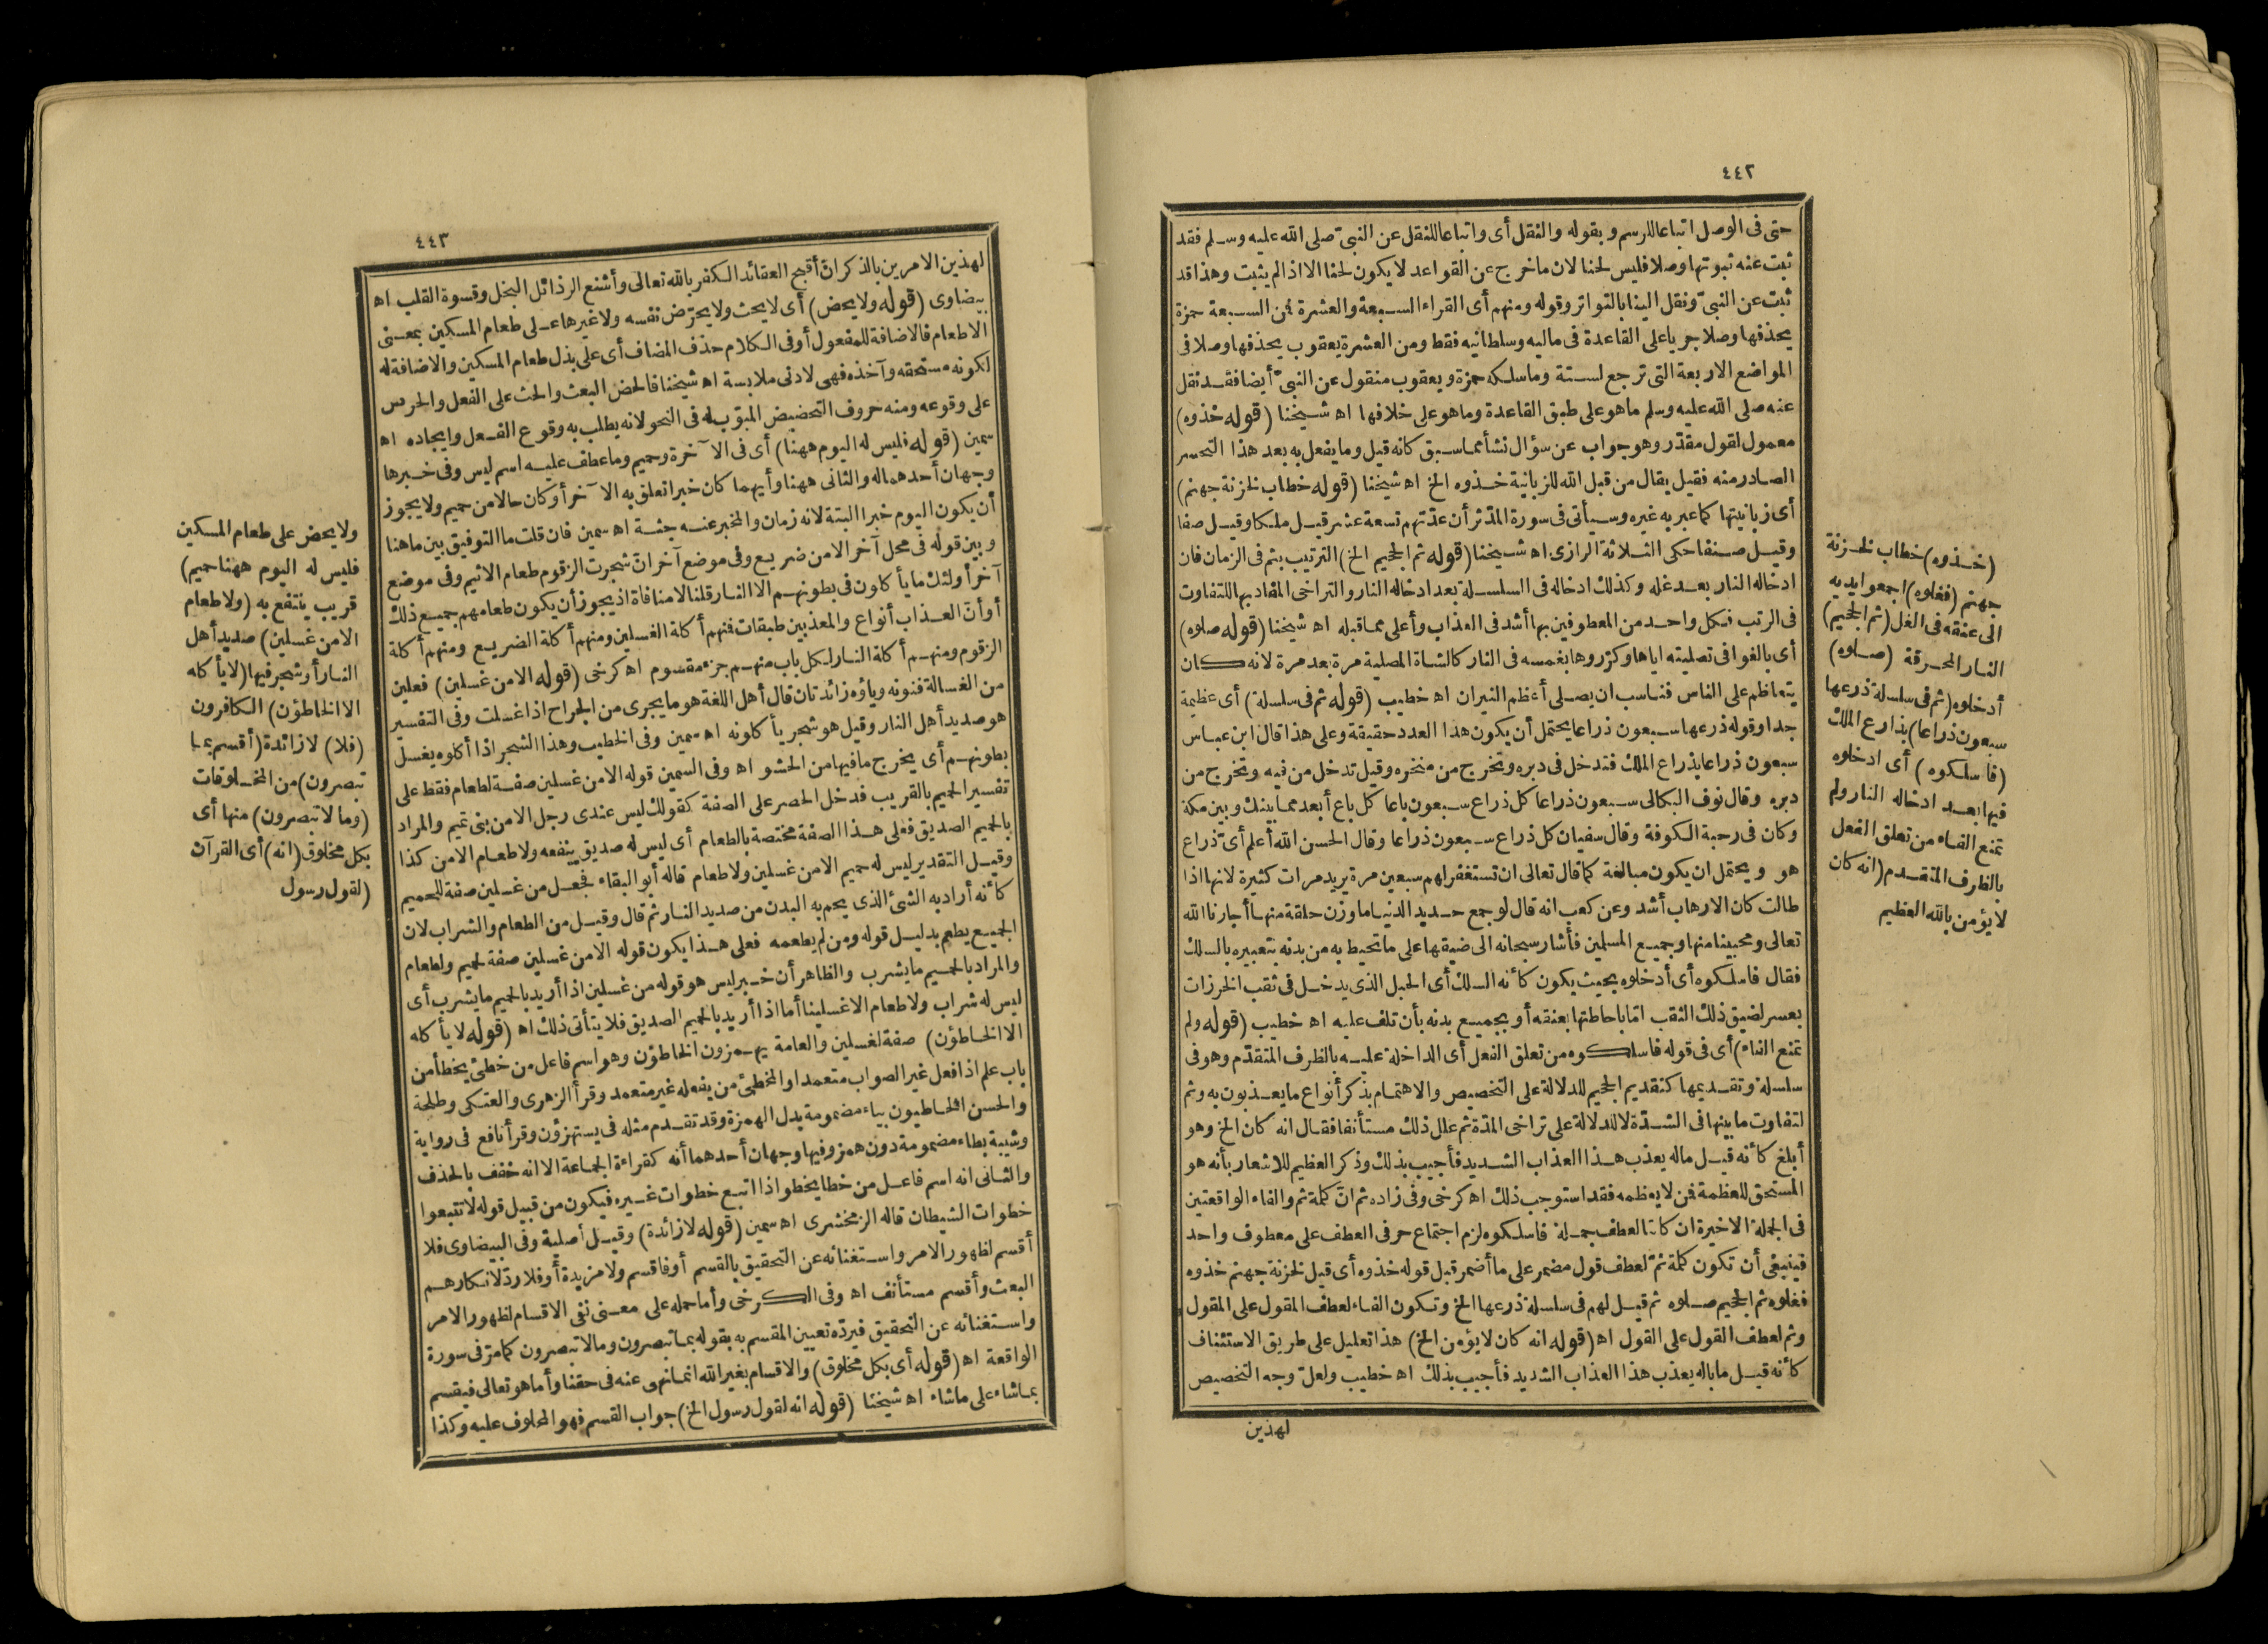 ٤٤٢
حتى فى الوصل اتباعا للرسم وبقوله والنقل أى واتباعا للنقل عن النبىّ صلى الله عليه وسلم فقد
ثبت عنه ثبوتها وصلا فليس لحنا لان ما خرج عن القواعد لا يكون لحنا الا اذا لم يثبت وهذا قد
ثبت عن النبىّ ونقل الينا بالتواتر وقوله ومنهم أى القراء السبعة والعشرة فمن السبعة حمزة
يحذفها وصلا جريا على القاعدة فى ماليه وسلطانيه فقط ومن العشرة يعقوب يحذفها وصلا فى
المواضع الاربعة التى ترجع لستة وما سلكه حمزة ويعقوب منقول عن النبىّ أيضا فقد نقل
عنه صلى الله عليه وسلم ما هو على طبق القاعدة وما هو على خلافها اه شيخنا (قوله خذوه)
معمول لقول مقدّر وهو جواب عن سؤال نشأ مما سبق كانه قيل وما يفعل به بعد هذا التحسر
الصادر منه فقيل يقال من قبل الله للزبانية خذوه الخ اه شيخنا (قوله خطاب لخزنة جهنم)
أى زبانيتها كما عبر به غيره وسيأتى فى سورة المدّثر أن عدّتهم تسعة عشر قيل ملكا وقيل صفا
وقيل صنفا حكى الثلاثة الرازى اه شيخنا (قوله ثم الجحيم الخ) الترتيب بثم فى الزمان فان
ادخاله النار بعد غله وكذلك ادخاله فى السلسلة بعد ادخاله النار والتراخى المفاد بها للتفاوت
فى الرتب فكل واحد من المعطوفين بها أشد فى العذاب وأعلى مما قبله اه شيخنا (قوله صلوه)
أى بالغوا فى تصليته اياها وكرّروها بغمسه فى النار كالشاة المصلية مرة بعد مرة لانه كان
يتعاظم على الناس فناسب ان يصلى أعظم النيران اه خطيب (قوله ثم فى سلسلة) أى عظيمة
جدا وقوله ذرعها سبعون ذراعا يحتمل أن يكون هذا العدد حقيقة وعلى هذا قال ابن عباس
سبعون ذراعا بذراع الملك فتدخل فى دبره وتخرج من منخره وقيل تدخل من فيه وتخرج من
دبره وقال نوف البكالى سبعون ذراعا كل ذراع سبعون باعا كل باع أبعد مما بينك وبين مكة
وكان فى رحبة الكوفة وقال سفيان كل ذراع سبعون ذراعا وقال الحسن الله أعلم أىّ ذراع
هو ويحتمل ان يكون مبالغة كما قال تعالى ان تستغفر لهم سبعين مرة يريد مرات كثيرة لانها اذا
طالت كان الارهاب أشد وعن كعب انه قال لو جمع حديد الدنيا ما وزن حلقة منها أجارنا الله
تعالى ومحبينا منها وجميع المسلمين فأشار سبحانه الى ضيقها على ما تحيط به من بدنه بتعبيره بالسلك
فقال فاسلكوه أى أدخلوه بحيث يكون كأنه السلك أى الحبل الذى يدخل فى ثقب الخرزات
بعسر لضيق ذلك الثقب امّا باحاطتها بعنقه أو بجميع بدنه بأن تلف عليه اه خطيب (قوله ولم
تمنع الفاء) أى فى قوله فاسلكوه من تعلق الفعل أى الداخلة عليه بالظرف المتقدّم وهو فى
سلسلة وتقديمها كتقديم الجحيم للدلالة على التخصيص والاهتمام بذكر أنواع ما يعذبون به وثم
لتفاوت ما بينها فى الشدّة لا للدلالة على تراخى المدّة ثم علل ذلك مستأنفا فقال انه كان الخ وهو
أبلغ كأنه قيل ماله يعذب هذا العذاب الشديد فأجيب بذلك وذكر العظيم للاشعار بأنه هو
المستحق للعظمة فمن لا يعظمه فقد استوجب ذلك اه كرخى وفى زاده ثم انّ كلمة ثم والفاء الواقعتين
فى الجملة الاخيرة ان كانا لعطف جملة فاسلكوه لزم اجتماع حرفى العطف على معطوف واحد
فينبغى أن تكون كلمة ثمّ لعطف قول مضمر على ما أضمر قبل قوله خذوه أى قيل لخزنة جهنم خذوه
فغلوه ثم الجحيم صلوه ثم قيل لهم فى سلسلة ذرعها الخ وتكون الفاء لعطف المقول على المقول
وثم لعطف القول على القول اه (قوله انه كان لا يؤمن الخ) هذا تعليل على طريق الاستئناف
كأنه قيل ما باله يعذب هذا العذاب الشديد فأجيب بذلك اه خطيب ولعلّ وجه التخصيص
لهذين
(خذوه) خطاب لخزنة
جهنم (فغلوه) اجمعوا يديه
الى عنقه فى الغل (ثم الجحيم)
النار المحرقة (صلوه)
أدخلوه (ثم فى سلسلة ذرعها
سبعون ذراعا) بذراع الملك
(فاسلكوه) أى ادخلوه
فيها بعد ادخاله النار ولم
تمنع الفاء من تعلق الفعل
بالظرف المتقدم (انه كان
لا يؤمن بالله العظيم
٤٤٣
لهذين الامرين بالذكر انّ أقبح العقائد الكفر بالله تعالى وأشنع الرذائل البخل وقسوة القلب اه
بيضاوى (قوله ولا يحض) أى لا يحث ولا يحرّض نفسه ولا غيرها على طعام المسكين بمعنى
الاطعام فالاضافة للمفعول أو فى الكلام حذف المضاف أى على بذل طعام المسكين والاضافة له
لكونه مستحقه وآخذه فهى لادنى ملابسة اه شيخنا فالحض البعث والحث على الفعل والحرص
على وقوعه ومنه حروف التحضيض المبوّب له فى النحو لانه يطلب به وقوع الفعل وايجاده اه
سمين (قوله فليس له اليوم ههنا) أى فى الا آخرة وحميم وما عطف عليه اسم ليس وفى خبرها
وجهان أحدهما له والثانى ههنا وأيهما كان خبرا تعلق به الا آخر أو كان حالا من حميم ولا يجوز
أن يكون اليوم خبرا البتة لانه زمان والمخبر عنه جثة اه سمين فان قلت ما التوفيق بين ما هنا
وبين قوله فى محل آخر الا من ضريع وفى موضع آخر انّ شجرت الزقوم طعام الاثيم وفى موضع
آخر أولئك ما يأكلون فى بطونهم الا النار قلنا لا منافاة اذ يجوز أن يكون طعامهم جميع ذلك
أو أنّ العذاب أنواع والمعذبين طبقات فمنهم أكلة الغسلين ومنهم أكلة الضريع ومنهم أكلة
الزقوم ومنهم أكلة النار لكل باب منهم جزء مقسوم اه كرخى (قوله الا من غسلين) فعلين
من الغسالة فنونه وياؤه زائدتان قال أهل اللغة هو ما يجرى من الجراح اذا غسلت وفى التفسير
هو صديد أهل النار وقيل هو شجر يأكلونه اه سمين وفى الخطيب وهذا الشجر اذا أكلوه يغسل
بطونهم أى يخرج ما فيها من الحشو اه وفى السمين قوله الا من غسلين صفة لطعام فقط على
تفسير الحميم بالقريب فدخل الحصر على الصفة كقولك ليس عندى رجل الا من بنى تميم والمراد
بالحميم الصديق فعلى هذا الصفة مختصة بالطعام أى ليس له صديق ينفعه ولا طعام الا من كذا
وقيل التقدير ليس له حميم الا من غسلين ولا طعام قاله أبو البقاء فجعل من غسلين صفة للحميم
كأنه أراد به الشئ الذى يحم به البدن من صديد النار ثم قال وقيل من الطعام والشراب لان
الجميع يطعم بدليل قوله ومن لم يطعمه فعلى هذا يكون قوله الا من غسلين صفة لحميم ولطعام
والمراد بالحميم ما يشرب والظاهر أن خبر ليس هو قوله من غسلين اذا أريد بالحميم ما يشرب أى
ليس له شراب ولا طعام الا غسلينا أما اذا أريد بالحميم الصديق فلا يتأتى ذلك اه (قوله لا يأكله
الا الخاطؤن) صفة لغسلين والعامة يهمزون الخاطؤن وهو اسم فاعل من خطئ يخطأ من
باب علم اذا فعل غير الصواب متعمدا والمخطئ من يفعله غير متعمد وقرأ الزهرى والعتكى وطلحة
والحسن الخاطيون بياء مضمومة بدل الهمزة وقد تقدم مثله فى يستهزؤن وقرأ نافع فى رواية
وشيبة بطاء مضمومة دون همز وفيها وجهان أحدهما أنه كقراءة الجماعة الا انه خفف بالحذف
والثانى انه اسم فاعل من خطا يخطو اذا اتبع خطوات غيره فيكون من قبيل قوله لا تتبعوا
خطوات الشيطان قاله الزمخشرى اه سمين (قوله لا زائدة) وقيل أصلية وفى البيضاوى فلا
أقسم لظهور الامر واستغنائه عن التحقيق بالقسم أو فاقسم ولا مزيدة أو فلا ردّ لانكارهم
البعث وأقسم مستأنف اه وفى الكرخى وأما حمله على معنى نفى الاقسام لظهور الامر
واستغنائه عن التحقيق فيردّه تعيين المقسم به بقوله بما تبصرون وما لا تبصرون كما مرّ فى سورة
الواقعة اه (قوله أى بكل مخلوق) والاقسام بغير الله انما نهى عنه فى حقنا وأما هو تعالى فيقسم
بما شاء على ما شاء اه شيخنا (قوله انه لقول رسول الخ) جواب القسم فهو المحلوف عليه وكذا
ولا يحض على طعام المسكين
فليس له اليوم ههنا حميم)
قريب ينتفع به (ولا طعام
الا من غسلين) صديد أهل
النار أو شجر فيها (لا يأكله
الا الخاطؤن) الكافرون
(فلا) لا زائدة (أقسم بما
تبصرون) من المخلوقات
(وما لا تبصرون) منها أى
بكل مخلوق (انه) أى القرآن
(لقول رسول